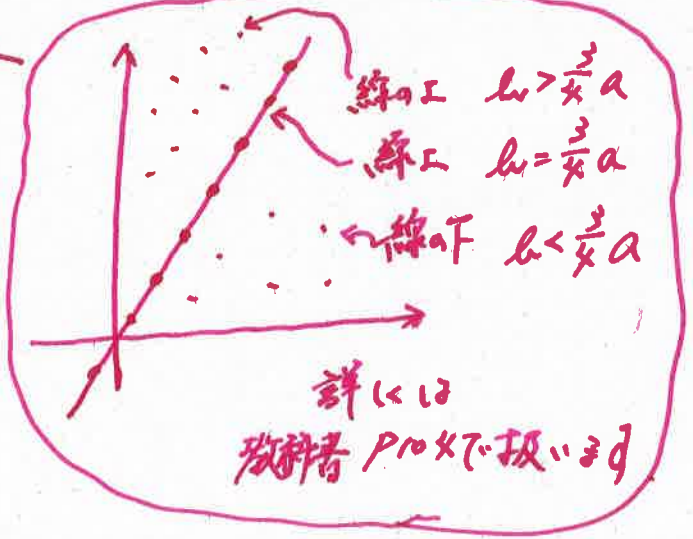 線の上 b>3/4 a
線上 b=3/4 a
線の下 b<3/4 a
詳しくは
教科書 P104で扱います